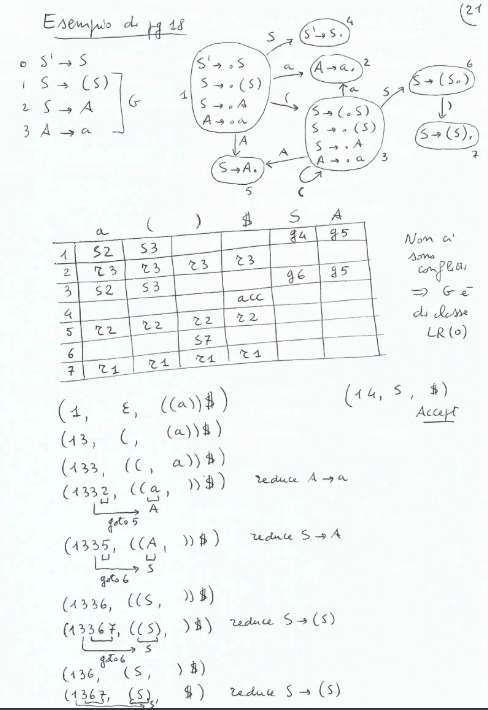 (21
Esempio di pg 18
0 S' → S
1 S → (S)
2 S → A
3 A → a
G
1
S' → .S
S → .(S)
S → .A
A → .a
S
S' → S.
4
a
A → a.
2
(
a
S → (.S)
S → .(S)
S → .A
A → .a
3
(
A
A
S → A.
5
S
S → (S.)
6
)
S → (S).
7
a ( ) $ S A
1 S2 S3 g4 g5
2 r3 r3 r3 r3
3 S2 S3 g6 g5
4 acc
5 r2 r2 r2 r2
6 S7
7 r1 r1 r1 r1
Non ci
sono
conflitti
⇒ G è
di classe
LR(0)
(1, ε, ((a))$)
(13, (, (a))$)
(133, ((, a))$)
(1332, ((a, ))$) reduce A → a
goto 5 A
(1335, ((A, ))$) reduce S → A
goto 6 S
(1336, ((S, ))$)
(13367, ((S), )$) reduce S → (S)
goto 6 S
(136, (S, )$)
(1367, (S), $) reduce S → (S)
S
(14, S, $)
Accept